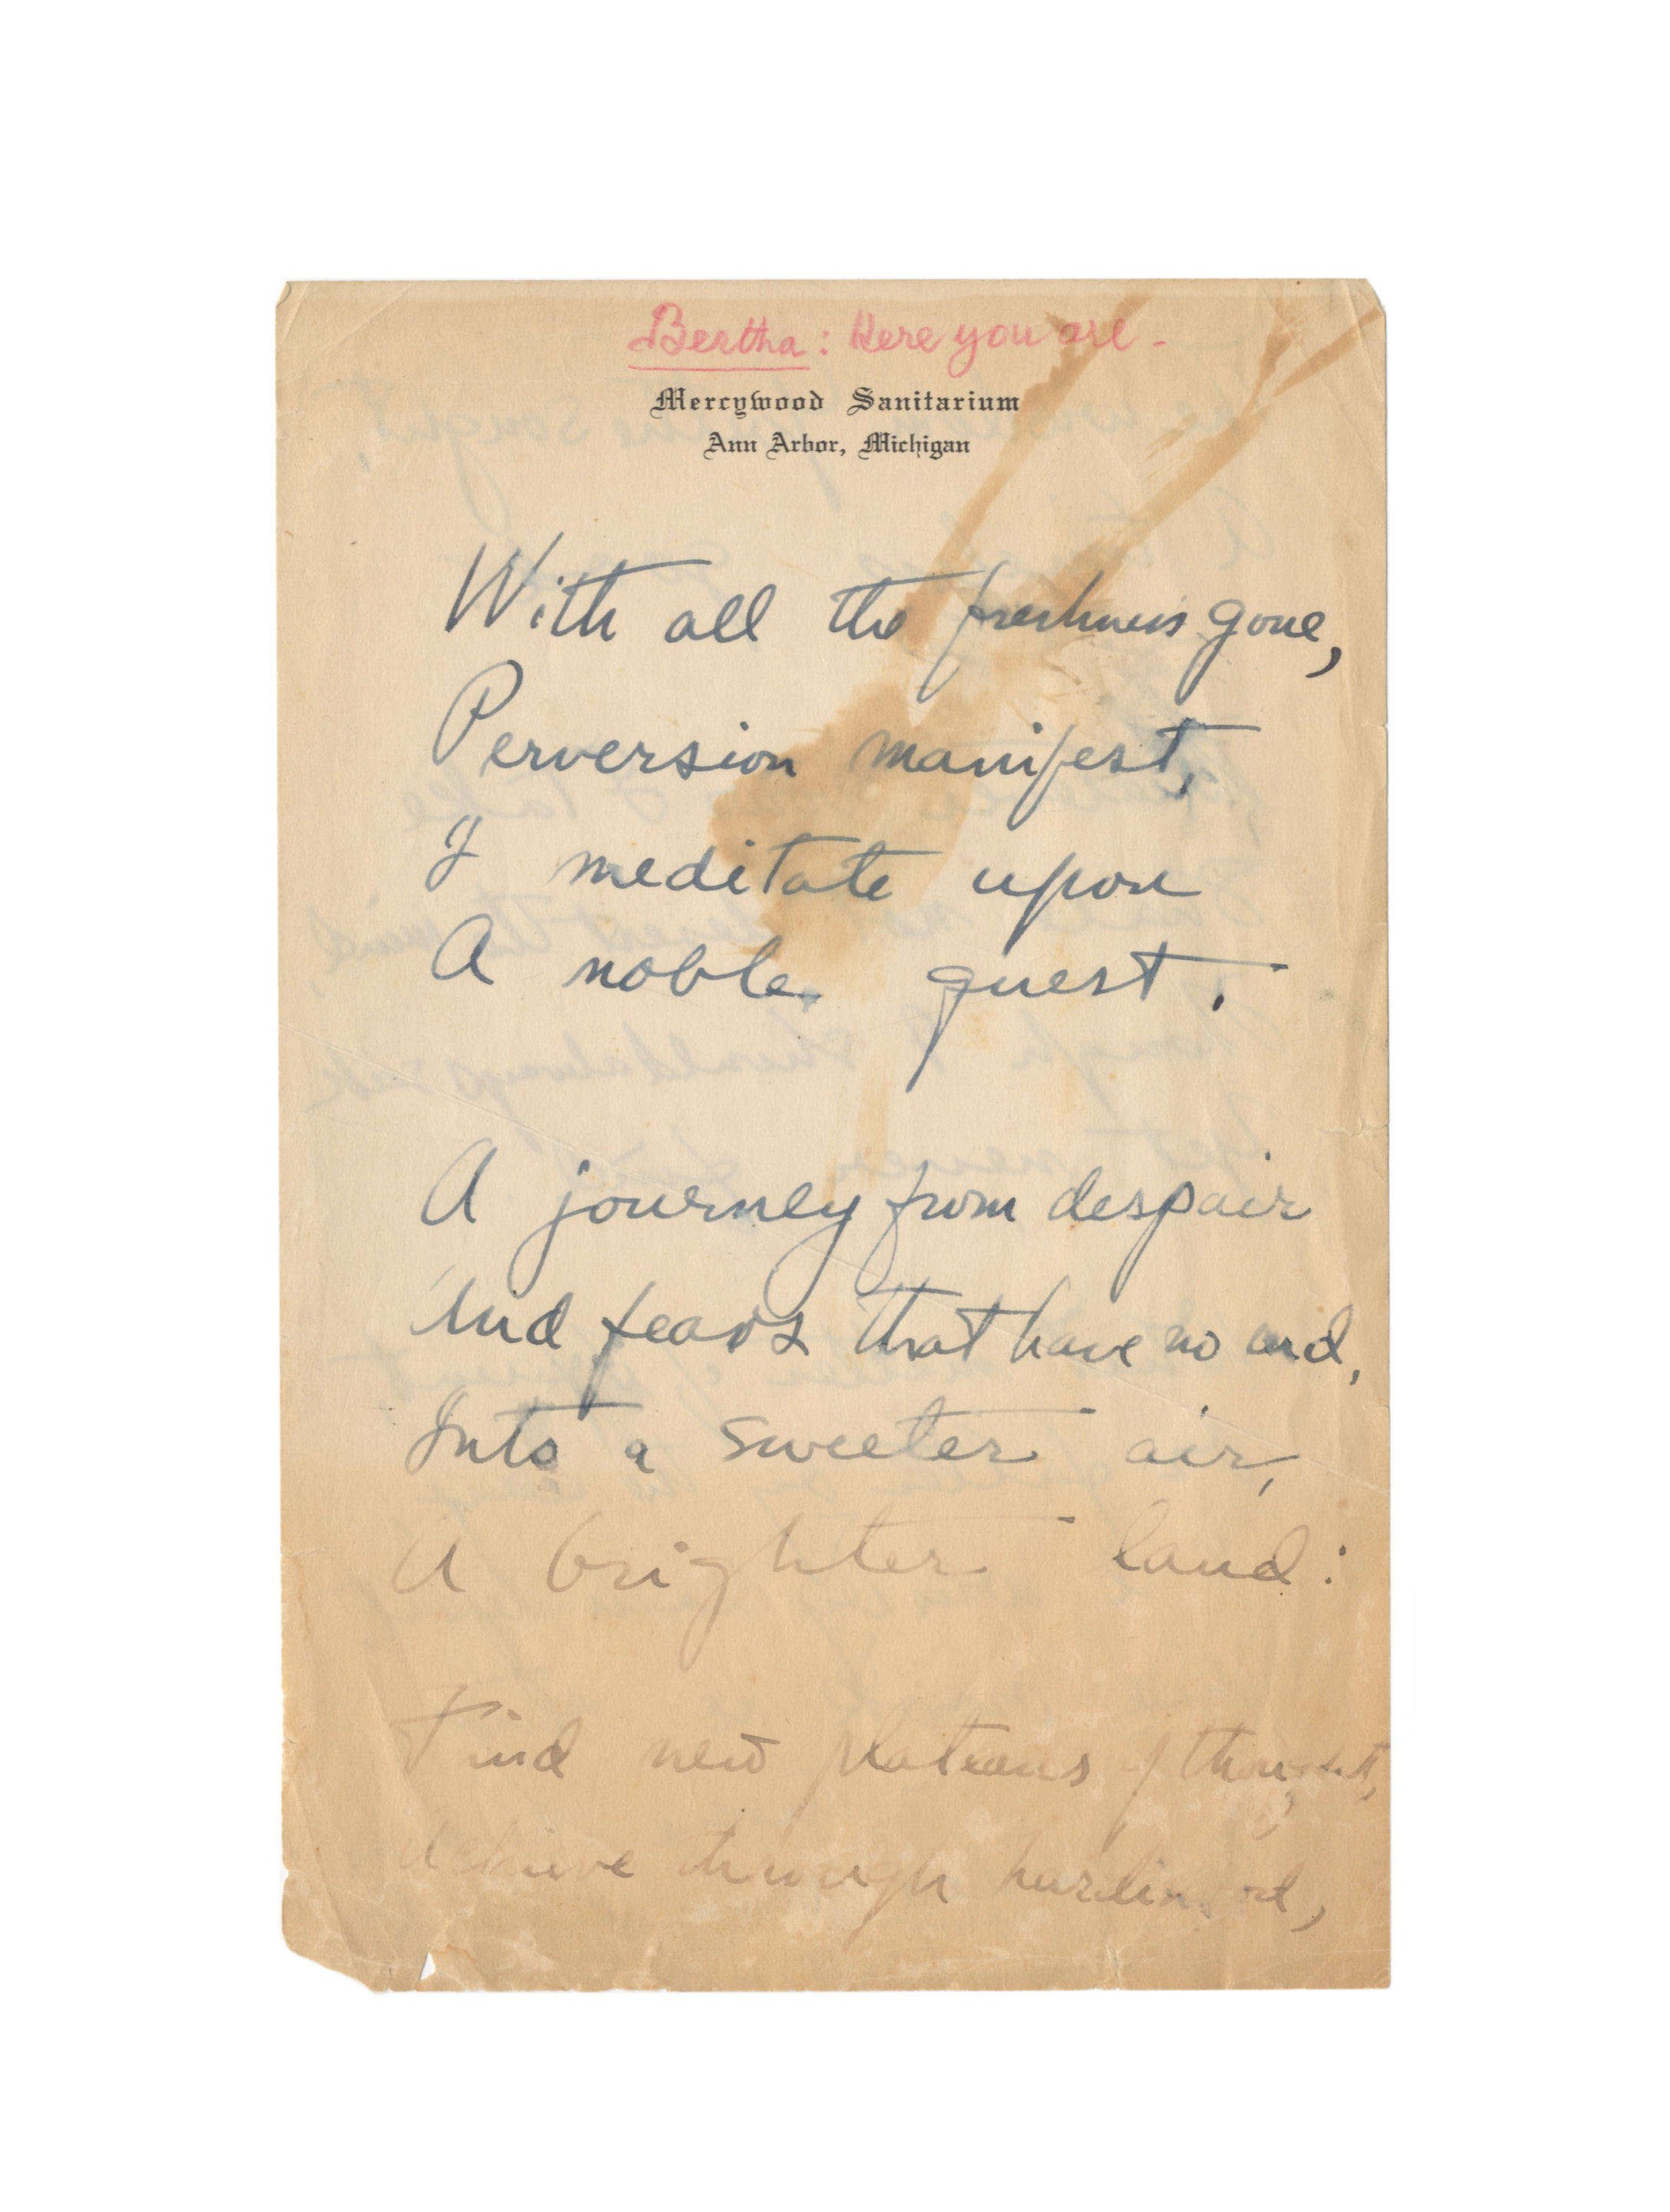 Bertha: Here you are -
Mercywood Sanitarium
Ann Arbor, Michigan
With all the freshness gone,
Perversion manifest,
I meditate upon
A noble quest.
A journey from despair
And fears that have no end,
Into a sweeter air,
A brighter land:
Find new plateaus of thought,
Achieve through